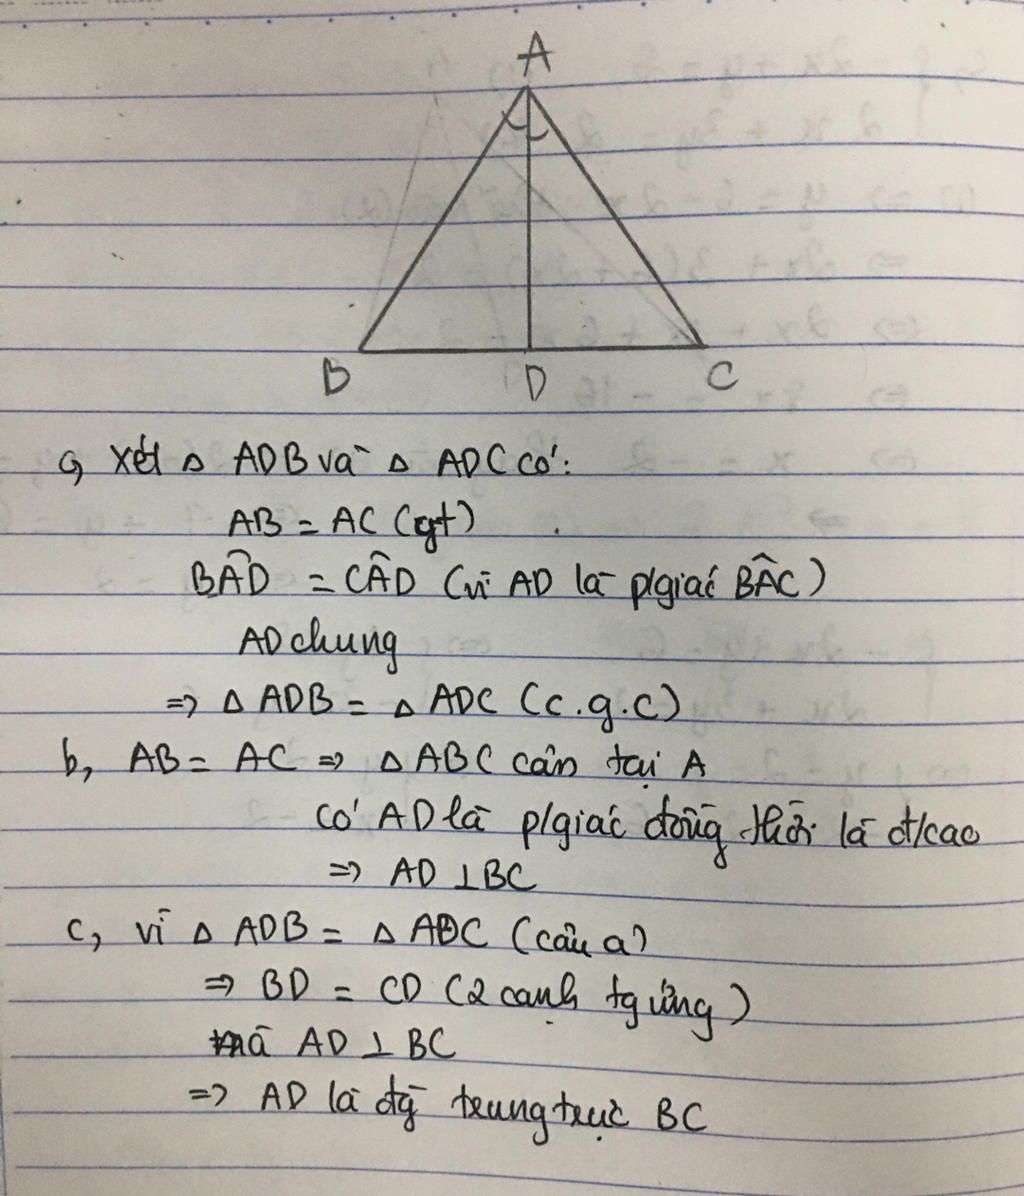 A
B
D
C
a, xét Δ ADB và Δ ADC có:
AB = AC (gt)
BÂD = CÂD (vì AD là p/giác BÂC)
AD chung
=> Δ ADB = Δ ADC (c.g.c)
b, AB = AC => Δ ABC cân tại A
có AD là p/giác đồng thời là đ/cao
=> AD ⊥ BC
c, vì Δ ADB = Δ ADC (câu a)
=> BD = CD (2 cạnh tg ứng)
mà AD ⊥ BC
=> AD là đg trung trực BC